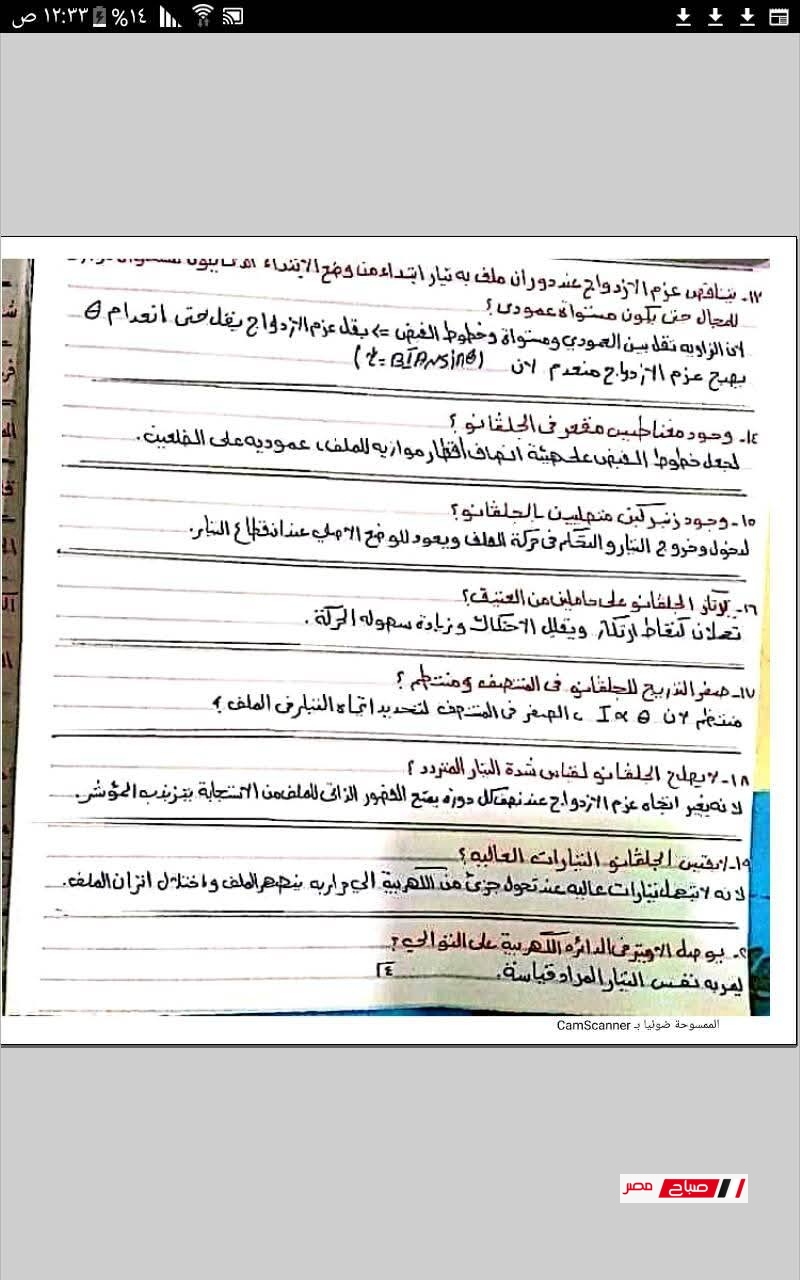 ١٢:٣٣ ص ١٤%
١٣- يتناقص عزم الازدواج عند دوران ملف به تيار ابتداء من وضع الابتداء
للمجال حتى يكون مستواة عمودى؟
لان الزاويه تقل بين العمودي ومستواة وخطوط الفيض => يقل عزم الازدواج يقل حتى انعدام θ
يصبح عزم الازدواج منعدم لان (τ=BIANsinθ)
١٤- وجود مغناطيس مقعر فى الجلفانو؟
لجعل خطوط الفيض على هيئة انصاف أقطار موازيه للملف، عموديه على الضلعين.
١٥- وجود زنبركين متصلين بالجلفانو؟
لدخول وخروج التيار والتحكم فى حركة الملف ويعود للوضع الاصلي عند انقطاع التيار.
١٦- يرتكز الجلفانو على حاملين من العقيق؟
تعملان كنقاط ارتكاز ويقلل الاحتكاك وزيادة سهوله الحركة.
١٧- صفر التدريج للجلفانو فى المنتصف ومنتظم؟
منتظم لان I ∝ θ ، الصفر فى المنتصف لتحديد اتجاه التيار فى الملف؟
١٨- لا يصلح الجلفانو لقياس شدة التيار المتردد؟
لانه يغير اتجاه عزم الازدواج عند نصف كل دوره يمنع القصور الذاتى للملف من الاستجابة بتذبذب المؤشر.
١٩- لا يقيس الجلفانو التيارات العاليه؟
لانه لا يتحمل تيارات عاليه عند تحول جزئ من الكهربية الي حراريه ينصهر الملف واختلال اتزان الملف.
٢٠- يوصل الاوميتر فى الدائره الكهربية على التوالي؟
ليمر به نفس التيار المراد قياسة.
١٤
الممسوحة ضوئيا بـ CamScanner
صباح مصر